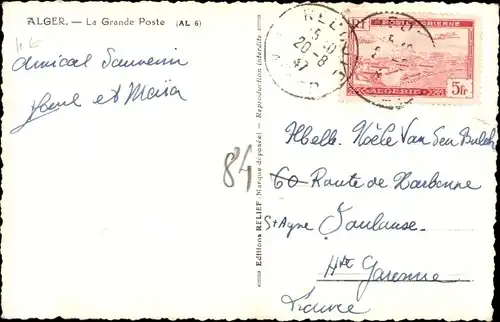 ALGER. — La Grande Poste (AL 6)
Amical Souvenir
et
Editions RELIEF (Marque déposée) - Reproduction interdite
84
15-10
20-8
47
RF POSTE AERIENNE
ALGERIE 5fr
Noële Van den Bulch
60 Route de Narbonne
St Agne Toulouse
Hte Garonne
France